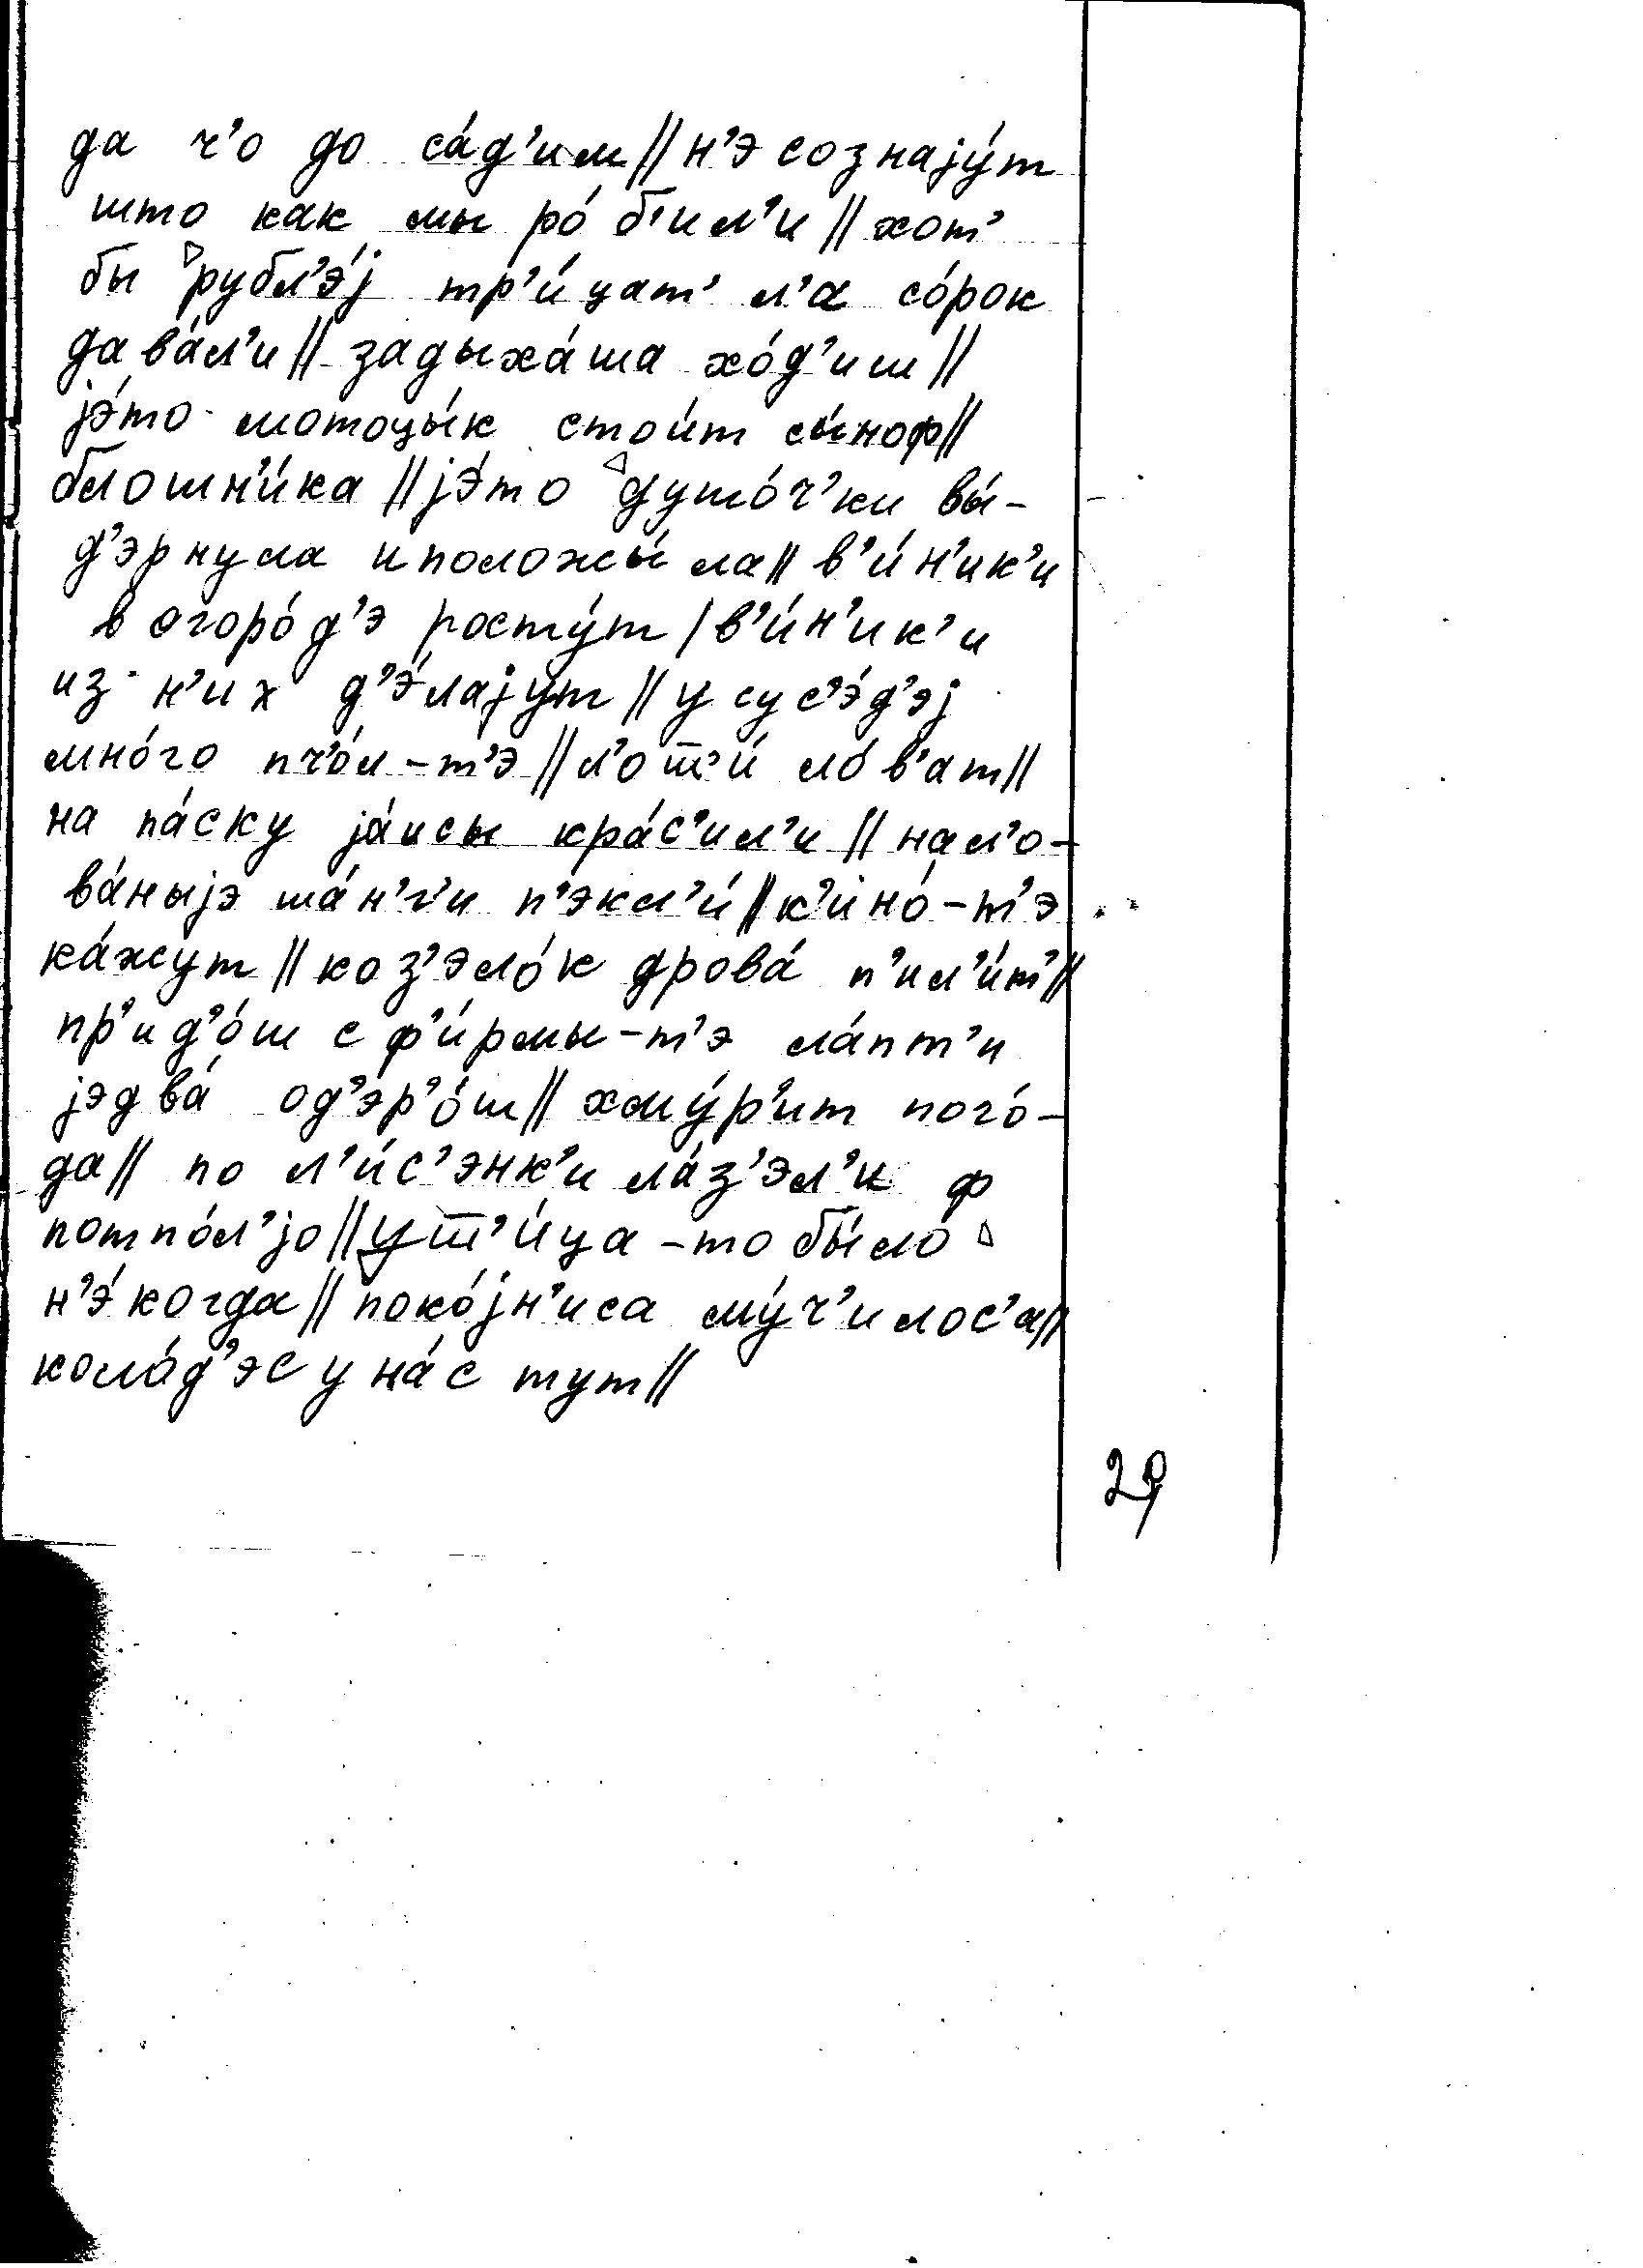 да ч’о до са́д’им // н’э сознају́т
што как мы ро́б’ил’и // хот’
бы рубл’э́ј тр’и́цат’ л’а со́рок
дава́л’и // задыха́ша хо́д’иш //
јэ́то мотоцы́к стои́т сы́ноф //
блошн’и́ка // јэ́то дуто́ч’ки вы́-
д’эрнула и положы́ла // в’и́н’ик’и
в огоро́д’э росту́т / в’и́н’ик’и
из н’их д’э́лајут // у сус’э́д’эј
мно́го пч’о́л-т’э // л’от’и́ ло́в’ат //
на па́ску ја́исы кра́с’ил’и // нал’о-
ва́ныјэ ша́н’г’и п’экл’и́ // к’ино́-т’э
ка́жут // коз’эло́к дрова́ п’ил’и́т’ //
пр’ид’о́ш с ф’и́рмы-т’э ла́пт’и
јэдва́ од’эр’о́ш // хму́р’ит пого́-
да // по л’и́с’энк’и ла́з’эл’и ф
потпо́л’јо // ут’и́ца-то бы́ло
н’э́когда // поко́јн’иса му́ч’илос’а //
коло́д’эс у на́с тут //
29